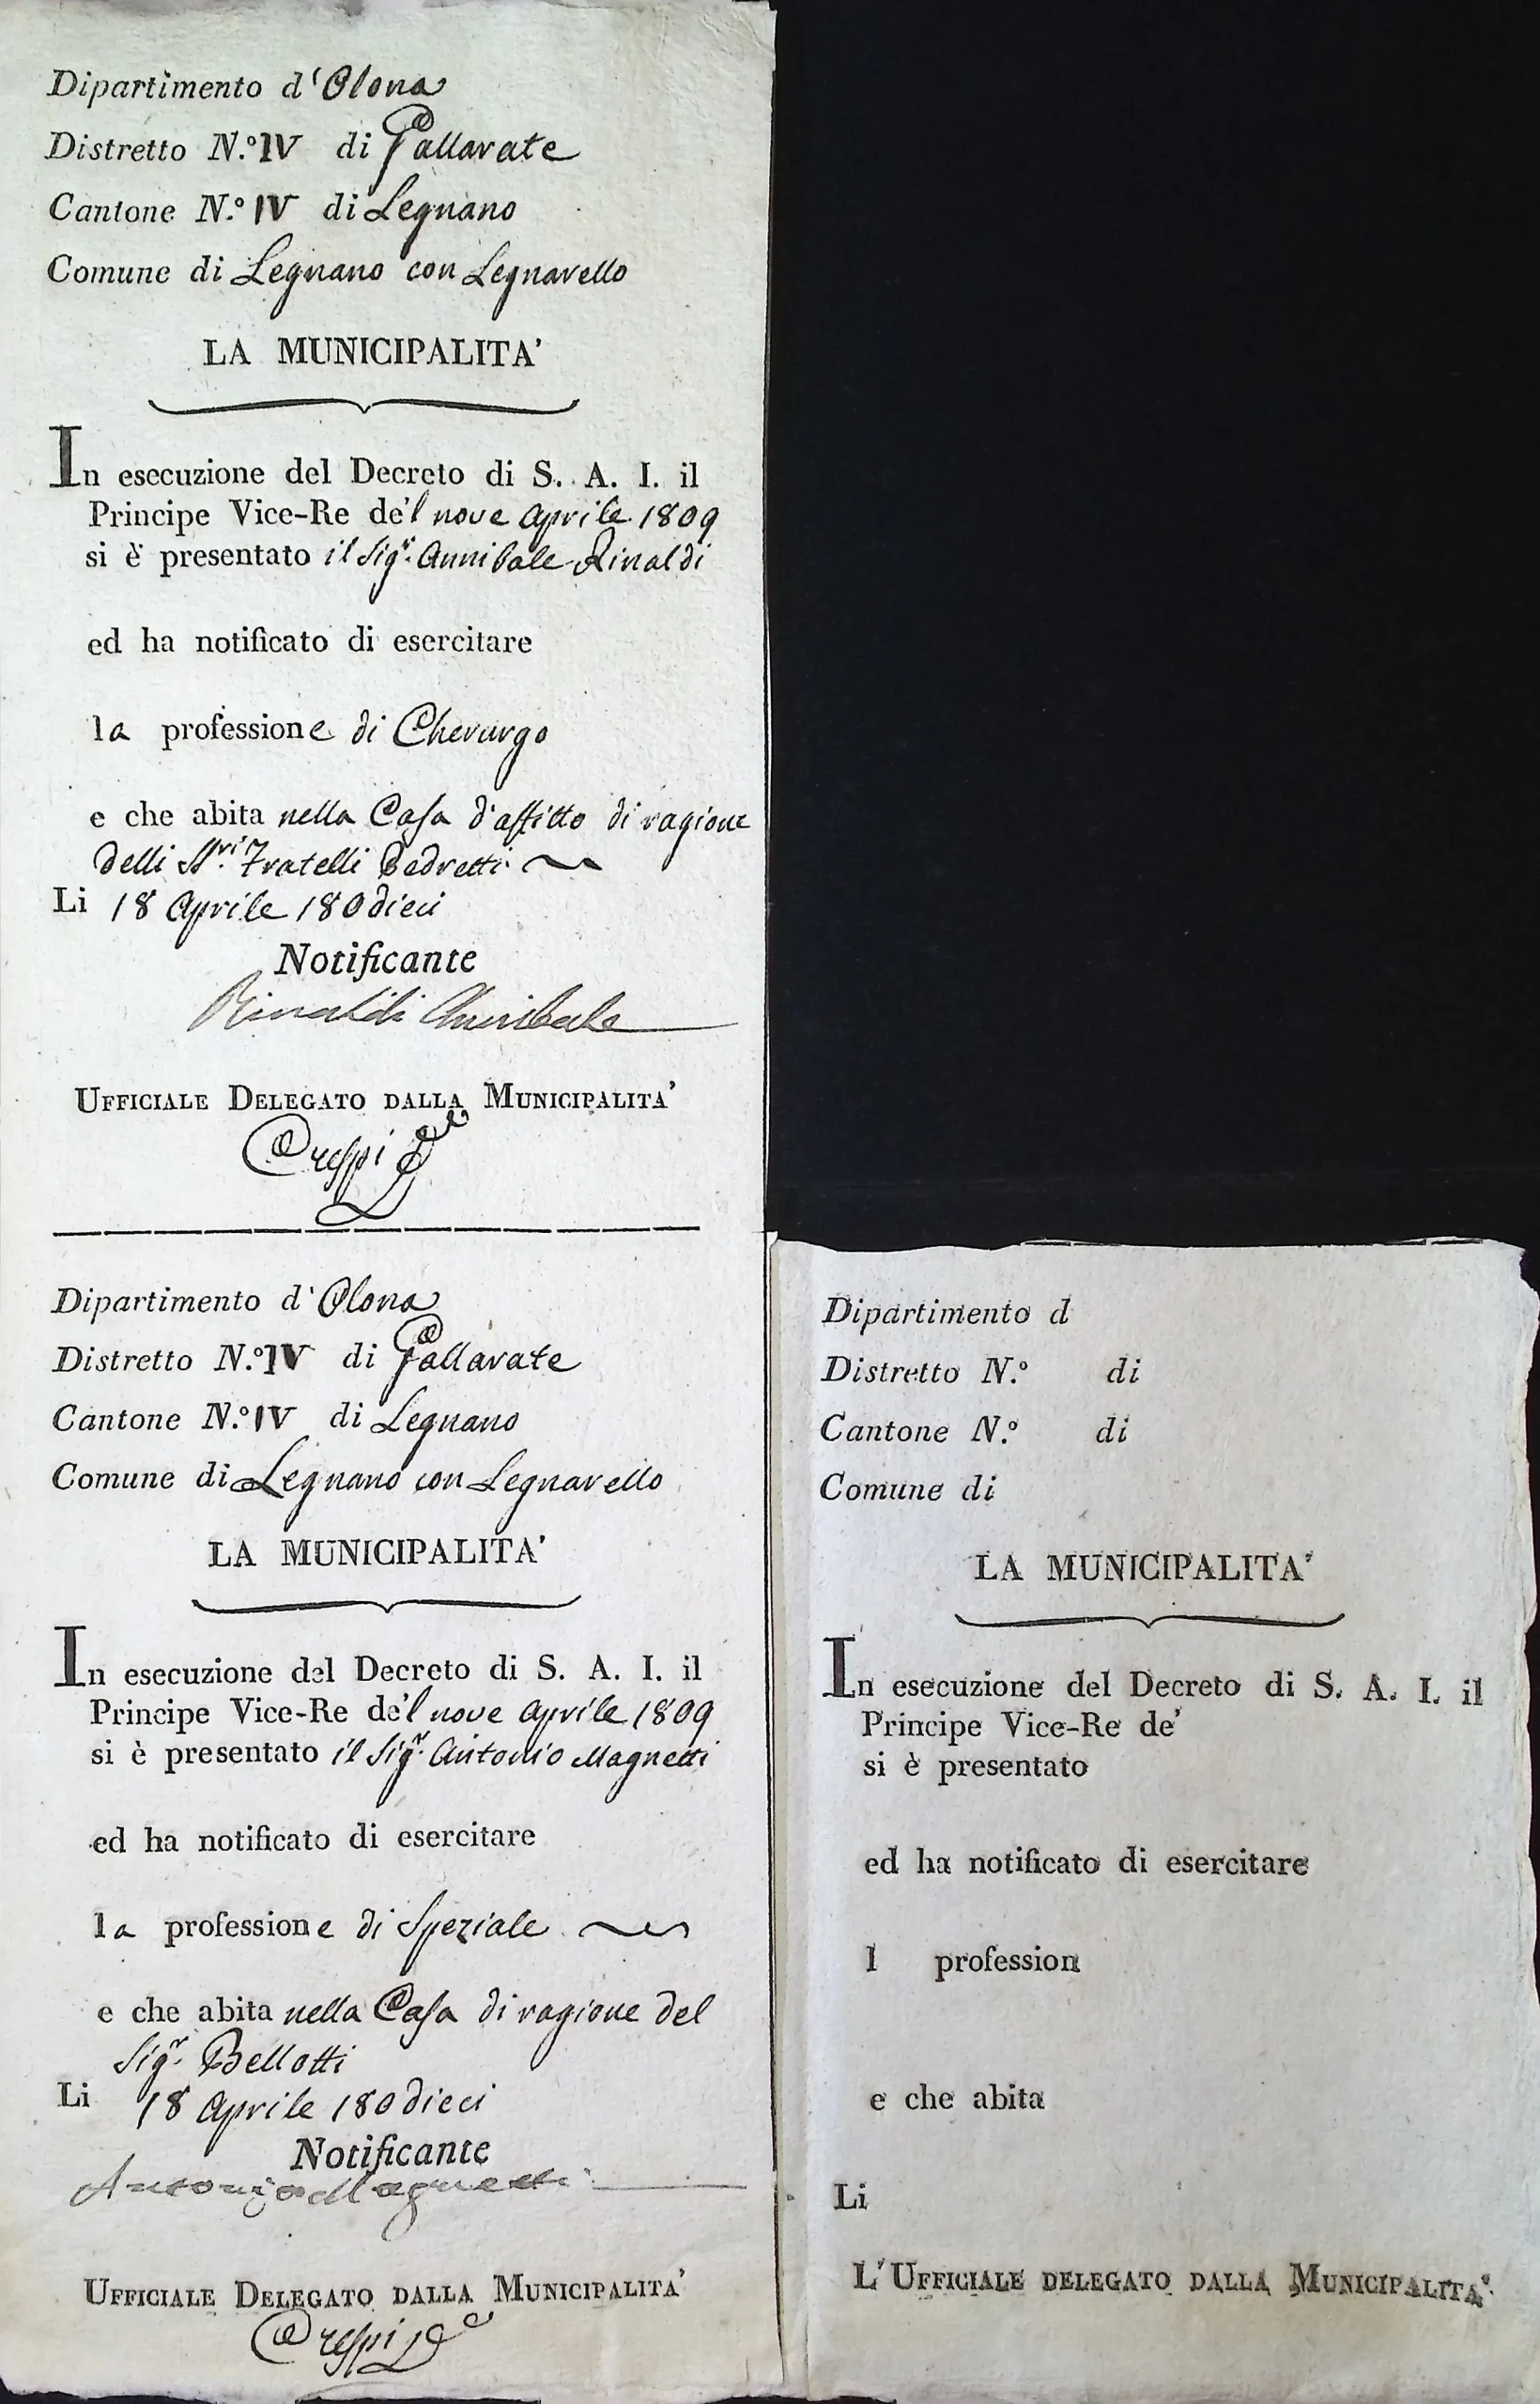 Dipartimento d'Olona
Distretto N.º IV di Gallarate
Cantone N.º IV di Legnano
Comune di Legnano con Legnarello
LA MUNICIPALITA'
In esecuzione del Decreto di S. A. I. il
Principe Vice-Re de'l nove Aprile 1809
si è presentato il Sigr. Annibale Rinaldi
ed ha notificato di esercitare
la professione di Cherurgo
e che abita nella Casa d'affitto di ragione
delli Sri. Fratelli Bedretti
Li 18 Aprile 180dieci
Notificante
Rinaldi Annibale
UFFICIALE DELEGATO DALLA MUNICIPALITA'
Crespi
Dipartimento d'Olona
Distretto N.º IV di Gallarate
Cantone N.º IV di Legnano
Comune di Legnano con Legnarello
LA MUNICIPALITA'
In esecuzione del Decreto di S. A. I. il
Principe Vice-Re de'l nove Aprile 1809
si è presentato il Sigr. Antonio Magnetti
ed ha notificato di esercitare
la professione di Speziale
e che abita nella Casa di ragione del
Sigr. Bellotti
Li 18 Aprile 180dieci
Notificante
Antonio Magnetti
UFFICIALE DELEGATO DALLA MUNICIPALITA'
Crespi
Dipartimento d
Distretto N.º di
Cantone N.º di
Comune di
LA MUNICIPALITA'
In esecuzione del Decreto di S. A. I. il
Principe Vice-Re de'
si è presentato
ed ha notificato di esercitare
l profession
e che abita
Li
L'UFFICIALE DELEGATO DALLA MUNICIPALITA'